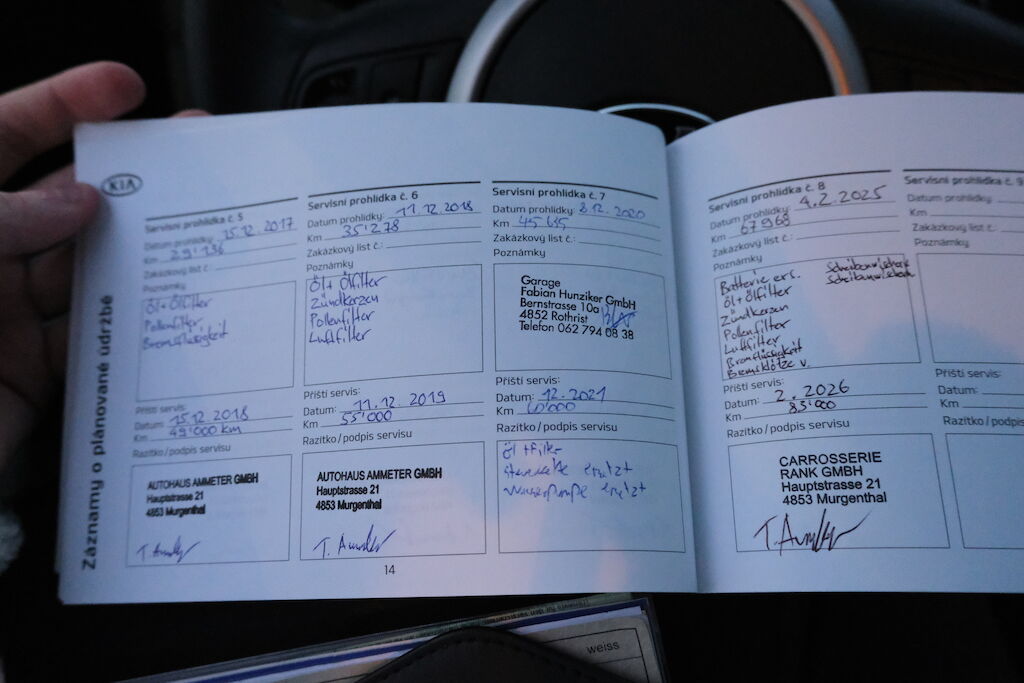 KIA
Záznamy o plánované údržbě
Servisní prohlídka č. 5
Datum prohlídky: 15.12.2017
Km 29'136
Zakázkový list č.:
Poznámky
Öl + Ölfilter
Pollenfilter
Bremsflüssigkeit
Příští servis:
Datum: 15.12.2018
Km 49'000 km
Razítko/podpis servisu
AUTOHAUS AMMETER GMBH
Hauptstrasse 21
4853 Murgenthal
Servisní prohlídka č. 6
Datum prohlídky: 11.12.2018
Km 35'278
Zakázkový list č.:
Poznámky
Öl + Ölfilter
Zündkerzen
Pollenfilter
Luftfilter
Příští servis:
Datum: 11.12.2019
Km 55'000
Razítko/podpis servisu
AUTOHAUS AMMETER GMBH
Hauptstrasse 21
4853 Murgenthal
14
Servisní prohlídka č. 7
Datum prohlídky: 8.12.2020
Km
Zakázkový list č.:
Poznámky
Garage
Fabian Hunziker GmbH
Bernstrasse 10a
4852 Rothrist
Telefon 062 794 08 38
Příští servis:
Datum: 12.2021
Km 60'000
Razítko/podpis servisu
Öl + Filter
ersetzt
Wasserpumpe ersetzt
Servisní prohlídka č. 8
Datum prohlídky: 4.2.2025
Km 67968
Zakázkový list č.:
Poznámky
Batterie ers.
Öl + Ölfilter
Zündkerzen
Pollenfilter
Luftfilter
Bremsflüssigkeit
Bremsklötze v.
Příští servis:
Datum: 2.2026
Km 85'000
Razítko/podpis servisu
CARROSSERIE
RANK GMBH
Hauptstrasse 21
4853 Murgenthal
Servisní prohlídka č. 9
Datum prohlídky:
Km
Zakázkový list č.:
Poznámky
Příští servis:
Datum:
Km
Razítko/podpis servisu
weiss